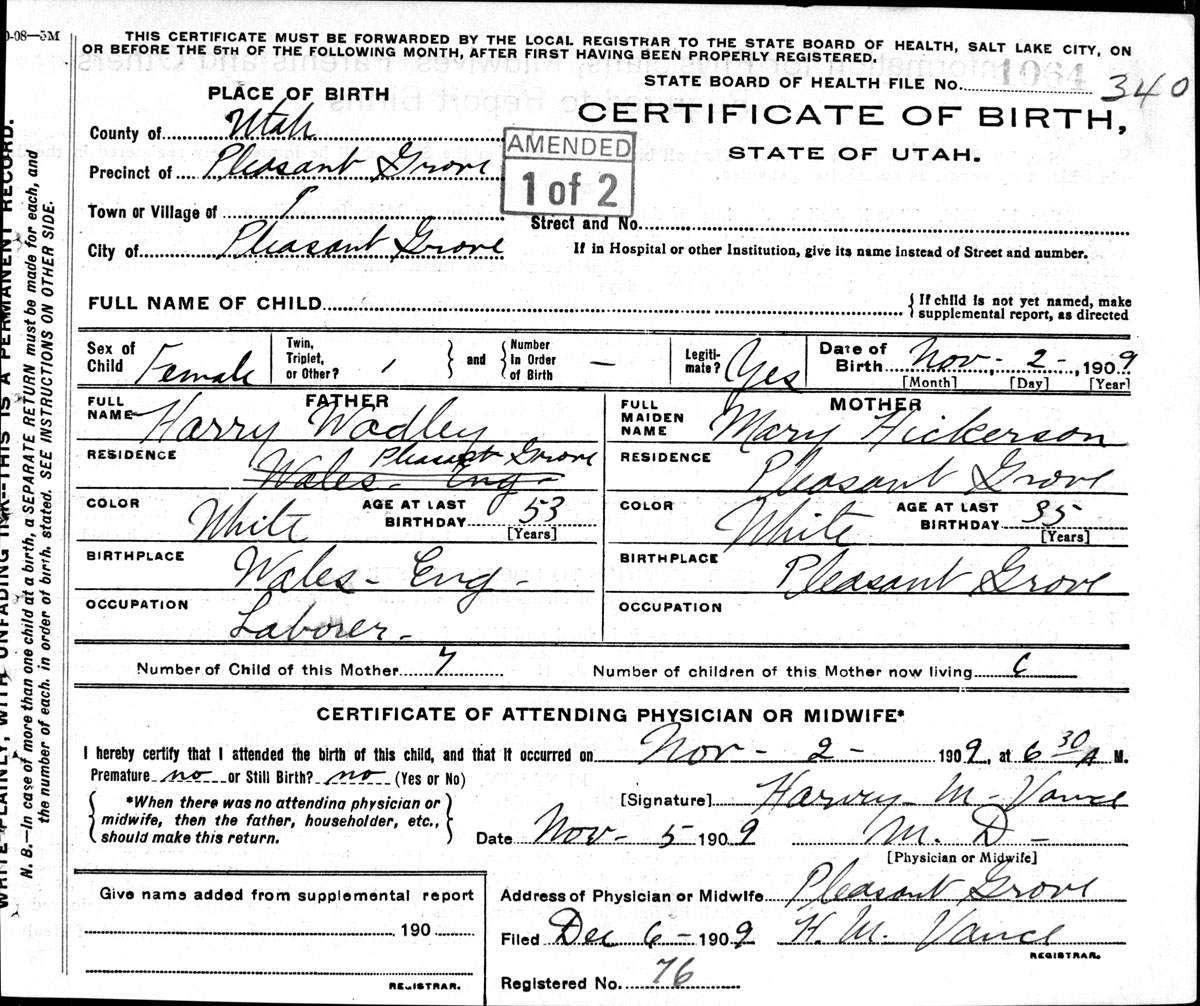 0-08—5M
THIS CERTIFICATE MUST BE FORWARDED BY THE LOCAL REGISTRAR TO THE STATE BOARD OF HEALTH, SALT LAKE CITY, ON
OR BEFORE THE 5TH OF THE FOLLOWING MONTH, AFTER FIRST HAVING BEEN PROPERLY REGISTERED.
1064
STATE BOARD OF HEALTH FILE No. 340
PLACE OF BIRTH
CERTIFICATE OF BIRTH,
STATE OF UTAH.
County of Utah
AMENDED
1 of 2
Precinct of Pleasant Grove
Town or Village of
Street and No.
City of Pleasant Grove
If in Hospital or other Institution, give its name instead of Street and number.
FULL NAME OF CHILD
If child is not yet named, make
supplemental report, as directed
Sex of Child Female
Twin, Triplet, or Other?
and
Number In Order of Birth —
Legiti-mate? Yes
Date of Birth Nov - 2 -, 1909
[Month] [Day] [Year]
FATHER
FULL NAME Harry Wadley
RESIDENCE Pleasant Grove
Wales - Eng -
COLOR White
AGE AT LAST BIRTHDAY 53
[Years]
BIRTHPLACE Wales - Eng -
OCCUPATION Laborer -
MOTHER
FULL MAIDEN NAME Mary Hickerson
RESIDENCE Pleasant Grove
COLOR White
AGE AT LAST BIRTHDAY 35
[Years]
BIRTHPLACE Pleasant Grove
OCCUPATION
Number of Child of this Mother 7
Number of children of this Mother now living 6
CERTIFICATE OF ATTENDING PHYSICIAN OR MIDWIFE*
I hereby certify that I attended the birth of this child, and that it occurred on Nov - 2 - 1909, at 6 30 A M.
Premature no or Still Birth? no (Yes or No)
*When there was no attending physician or
midwife, then the father, householder, etc.,
should make this return.
[Signature] Harvey M - Vance
Date Nov - 5 1909 M. D -
[Physician or Midwife]
Give name added from supplemental report
190
REGISTRAR.
Address of Physician or Midwife Pleasant Grove
Filed Dec 6 - 1909 H. M. Vance
REGISTRAR.
Registered No. 76
WRITE PLAINLY, WITH UNFADING INK—THIS IS A PERMANENT RECORD.
N. B.—In case of more than one child at a birth, a SEPARATE RETURN must be made for each, and
the number of each, in order of birth, stated. SEE INSTRUCTIONS ON OTHER SIDE.